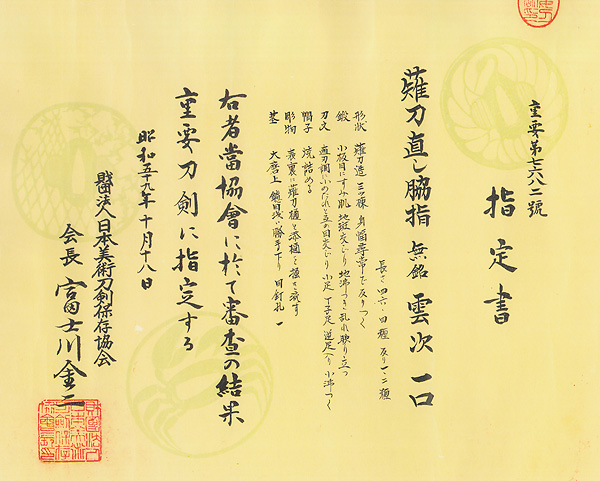 重要第七六八二號
指定書
薙刀直し脇指 無銘 雲次 一口
長さ四六・四糎 反り一・二糎
形状 薙刀造 三ツ棟 身幅尋常で反りつく
鍛 小板目にすみ肌 地斑交じり 地沸つき 乱れ映り立つ
刃文 直刃調に小のたれと互の目交じり 小足 丁子足 逆足入り 小沸つく
帽子 焼詰める
彫物 表裏に薙刀樋と添樋を掻き流す
茎 大磨上 鑢目浅い勝手下り 目釘孔一
右者當協會に於て審査の結果
重要刀剣に指定する
昭和五十九年十月十八日
財団法人日本美術刀剣保存協会
会長 富士川金二